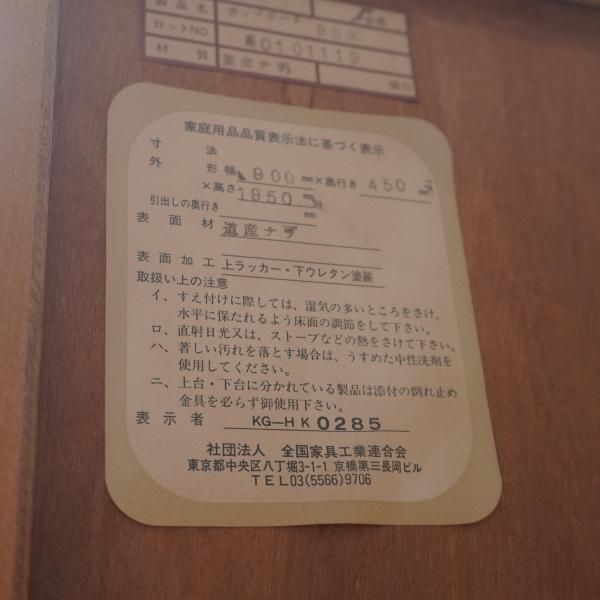 製品名 カップボード 900
ロットNO 0101119
材質 道産ナラ
家庭用品品質表示法に基づく表示
寸法
外形 幅 900 mm×奥行き 450
×高さ 1950 mm
引出しの奥行き mm
表面材 道産ナラ
表面加工 上ラッカー・下ウレタン塗装
取扱い上の注意
イ、すえ付けに際しては、湿気の多いところをさけ、
水平に保たれるよう床面の調節をして下さい。
ロ、直射日光又は、ストーブなどの熱をさけて下さい。
ハ、著しい汚れを落とす場合は、うすめた中性洗剤を
使用してください。
ニ、上台・下台に分かれている製品は添付の倒れ止め
金具を必らず御使用下さい。
表示者 KG—HK0285
社団法人 全国家具工業連合会
東京都中央区八丁堀3-1-1 京橋第三長岡ビル
TEL03(5566)9706